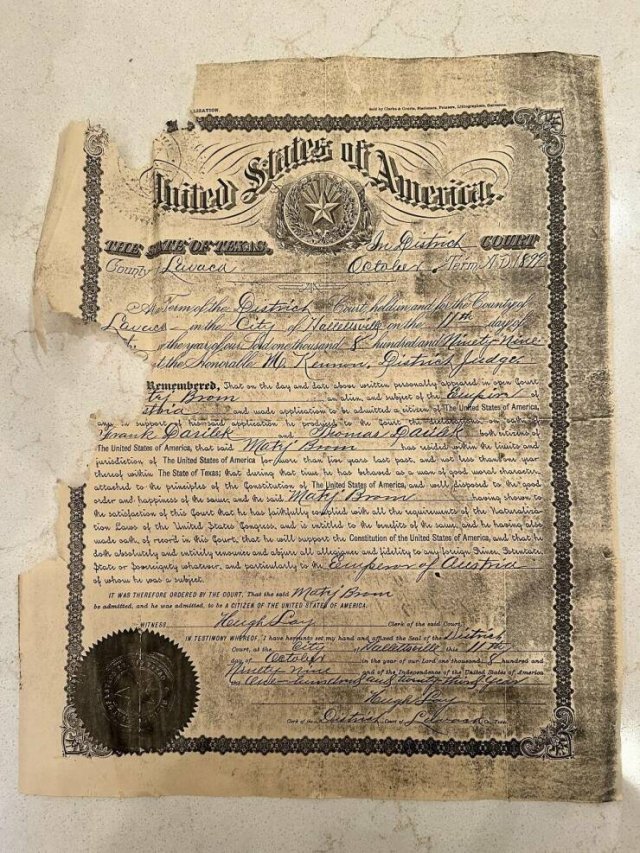 LIZATION.
Sold by Clarke & Courts, Stationers, Printers, Lithographers, Galveston.
United States of America.
THE STATE OF TEXAS,
In District COURT
County Lavaca
October Term A.D. 1899
At Term of the District Court, holden in and for the County of
Lavaca in the City of Hallettsville on the 11th day of
the year of our Lord one thousand 8 hundred and Ninety Nine
the Honorable M. Kennon, District Judge
Remembered, That on the day and date above written personally appeared in open Court
Brom an alien, and subject of the
and made application to be admitted a citizen of The United States of America,
and in support of his said application he produced to the Court the
Frank Darilek and Thomas Darilek both citizens of
The United States of America, that said Matij Brom has resided within the limits and
jurisdiction of The United States for more than five years last past, and not less than one year
thereof within The State of Texas; that during that time he has behaved as a man of good moral character,
attached to the principles of the Constitution of The United States of America, and well disposed to the good
order and happiness of the same; and the said Matij Brom having shown to
the satisfaction of this Court that he has faithfully complied with all the requirements of the Naturaliza-
tion Laws of the United States Congress, and is entitled to the benefits of the same, and he having also
made oath, of record in this Court, that he will support the Constitution of the United States of America, and that he
doth absolutely and entirely renounce and abjure all allegiance and fidelity to any foreign Prince, Potentate,
State or Sovereignty whatever, and particularly to the Emperor of Austria
of whom he was a subject.
IT WAS THEREFORE ORDERED BY THE COURT, That the said Matij Brom
be admitted, and he was admitted, to be A CITIZEN OF THE UNITED STATES OF AMERICA.
WITNESS Hugh Lay Clerk of the said Court.
IN TESTIMONY WHEREOF, I have hereunto set my hand and affixed the Seal of the District
Court, at the City Hallettsville this 11th
day of October in the year of our Lord one thousand 8 hundred and
Ninety Nine and of the Independence of the United States of America
the One hundred and twenty third Year
Hugh Lay
Clerk of the District Court of Lavaca Co. Texas